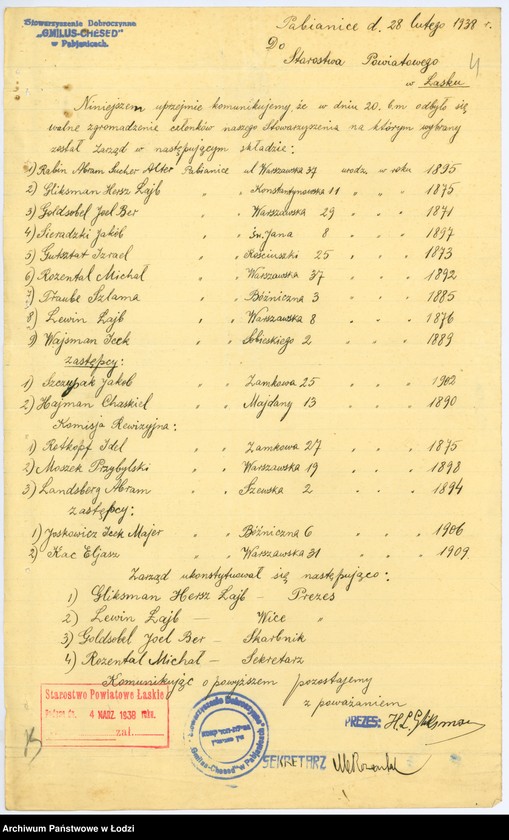 Stowarzyszenie Dobroczynne
„GMILUS-CHESED"
w Pabjanicach.
Pabianice d. 28 lutego 1938 r.
4
Do
Starostwa Powiatowego
w Łasku
Niniejszem uprzejmie komunikujemy, że w dniu 20. b.m odbyło się
walne zgromadzenie członków naszego Stowarzyszenia na którym wybrany
został zarząd w następującym składzie:
1) Rabin Abram Sucher Alter Pabianice ul Warszawska 37 urodz. w roku 1895
2) Gliksman Hersz Lajb " " Konstantynowska 11 " " " 1875
3) Goldsobel Joel Ber " " Warszawska 29 " " " 1871
4) Sieradzki Jakób " " Św. Jana 8 " " " 1897
5) Gutsztat Izrael " " Kościuszki 25 " " " 1873
6) Rozental Michał " " Warszawska 37 " " " 1892
7) Traube Szlama " " Bóżniczna 3 " " " 1885
8) Lewin Łajb " " Warszawska 8 " " " 1876
9) Wajsman Icek " " Sobieskiego 2 " " " 1889
Zastępcy:
1) Szczypak Jakob " " Zamkowa 25 " " " 1902
2) Hajman Chaskiel " " Majdany 13 " " " 1890
Komisja Rewizyjna:
1) Rotkopf Idel " " Zamkowa 27 " " " 1875
2) Moszek Przybylski " " Warszawska 19 " " " 1898
3) Landsberg Abram " " Szewska 2 " " " 1894
Zastępcy:
1) Joskowicz Icek Majer " " Bóżniczna 6 " " " 1906
2) Kac Eljasz " " Warszawska 31 " " " 1909.
Zarząd ukonstytuował się następująco:
1) Gliksman Hersz Lajb – Prezes
2) Lewin Łajb – Wice "
3) Goldsobel Joel Ber – Skarbnik
4) Rozental Michał – Sekretarz
Komunikując o powyższem pozostajemy
z poważaniem
Starostwo Powiatowe Łaskie
4 MARZ. 1938 roku.
zał.
Stowarzyszenie Dobroczynne
"Gmilus-Chesed" w Pabjanicach
PREZES: H. L. Gliksman
SEKRETARZ
Archiwum Państwowe w Łodzi